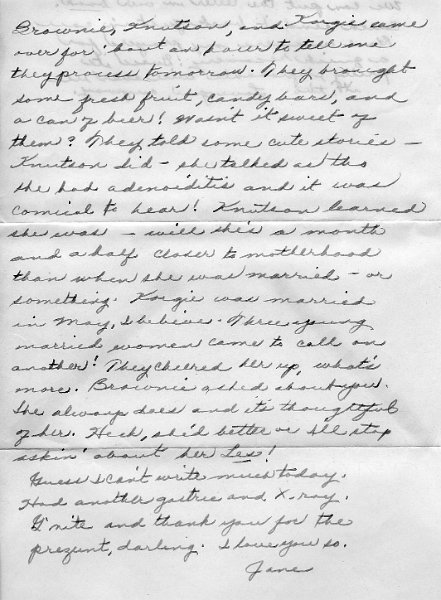 Brownie, Knutson, and Korgie came
over for 'bout an hour to tell me
they process tomorrow. They brought
some fresh fruit, candy bars, and
a can of beer! Wasn't it sweet of
them? They told some cute stories -
Knutson did - she talked as tho
she had adenoiditis and it was
comical to hear! Knutson learned
she was - will she's a month
and a half closer to motherhood
than when she was married - or
something. Korgie was married
in May, I believe. Three young
married women came to call on
another! They cheered her up, what's
more. Brownie asked about you.
She always does and it's thoughtful
of her. Heck, she'd better or I'll stop
askin' about her Les!
Guess I can't write much today.
Had another gastric and X-ray.
G'nite and thank you for the
prezunt, darling. I love you so.
Jane